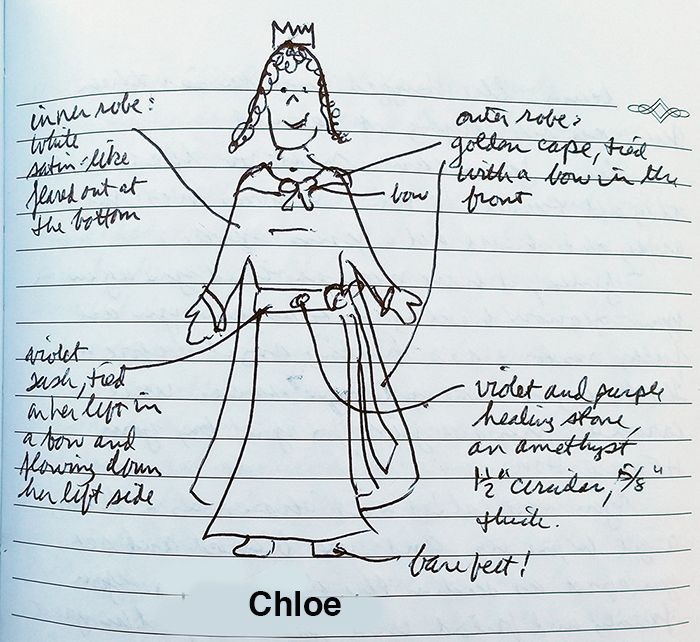 inner robe:
white
satin-like
flared out at
the bottom
outer robe:
golden cape, tied
with a bow in the
front
bow
violet
sash, tied
on her left in
a bow and
flowing down
her left side
violet and purple
healing stone,
an amethyst
1½" circular, 5/8"
thick.
bare feet!
Chloe